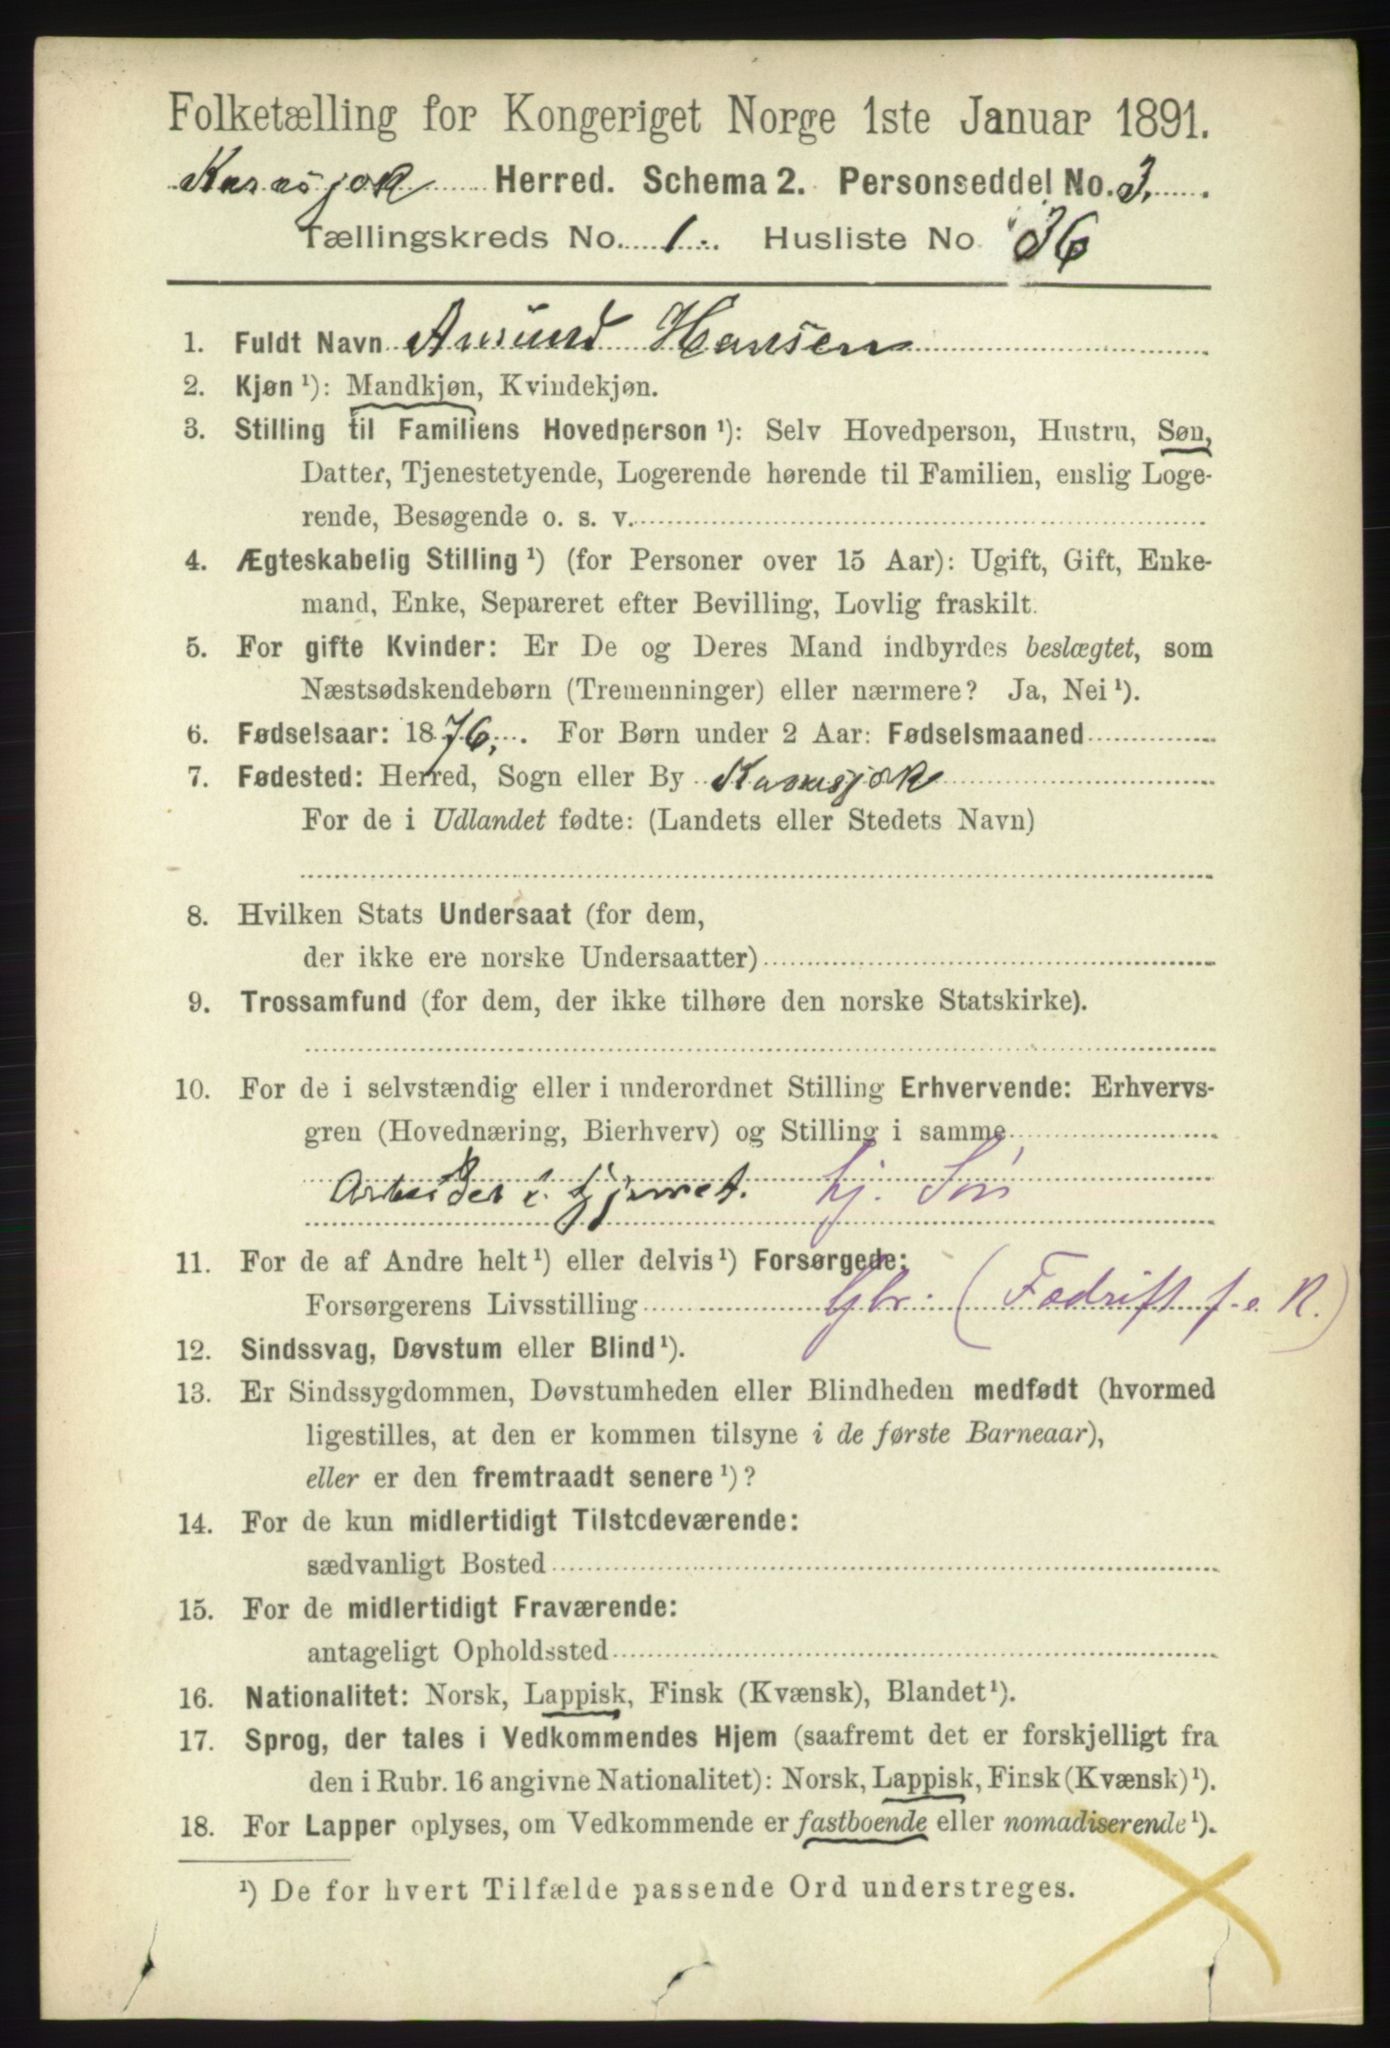 Folketælling for Kongeriget Norge 1ste Januar 1891.
Karasjok Herred. Schema 2. Personseddel No. 3.
Tællingskreds No. 1. Husliste No 36
1. Fuldt Navn Amund Hansen
2. Kjøn ¹): Mandkjøn, Kvindekjøn.
3. Stilling til Familiens Hovedperson ¹): Selv Hovedperson, Hustru, Søn,
Datter, Tjenestetyende, Logerende hørende til Familien, enslig Loge-
rende, Besøgende o. s. v.
4. Ægteskabelig Stilling ¹) (for Personer over 15 Aar): Ugift, Gift, Enke-
mand, Enke, Separeret efter Bevilling, Lovlig fraskilt.
5. For gifte Kvinder: Er De og Deres Mand indbyrdes beslægtet, som
Næstsødskendebørn (Tremenninger) eller nærmere? Ja, Nei ¹).
6. Fødselsaar: 1876. For Børn under 2 Aar: Fødselsmaaned
7. Fødested: Herred, Sogn eller By Karasjok
For de i Udlandet fødte: (Landets eller Stedets Navn)
8. Hvilken Stats Undersaat (for dem,
der ikke ere norske Undersaatter)
9. Trossamfund (for dem, der ikke tilhøre den norske Statskirke).
10. For de i selvstændig eller i underordnet Stilling Erhvervende: Erhvervs-
gren (Hovednæring, Bierhverv) og Stilling i samme
Arbeider i hjemmet. hj. Søn
11. For de af Andre helt ¹) eller delvis ¹) Forsørgede:
Forsørgerens Livsstilling Gbr. (Fædrift f. e. R.)
12. Sindssvag, Døvstum eller Blind ¹).
13. Er Sindssygdommen, Døvstumheden eller Blindheden medfødt (hvormed
ligestilles, at den er kommen tilsyne i de første Barneaar),
eller er den fremtraadt senere ¹)?
14. For de kun midlertidigt Tilstedeværende:
sædvanligt Bosted
15. For de midlertidigt Fraværende:
antageligt Opholdssted
16. Nationalitet: Norsk, Lappisk, Finsk (Kvænsk), Blandet ¹).
17. Sprog, der tales i Vedkommendes Hjem (saafremt det er forskjelligt fra
den i Rubr. 16 angivne Nationalitet): Norsk, Lappisk, Finsk (Kvænsk) ¹).
18. For Lapper oplyses, om Vedkommende er fastboende eller nomadiserende ¹).
¹) De for hvert Tilfælde passende Ord understreges.